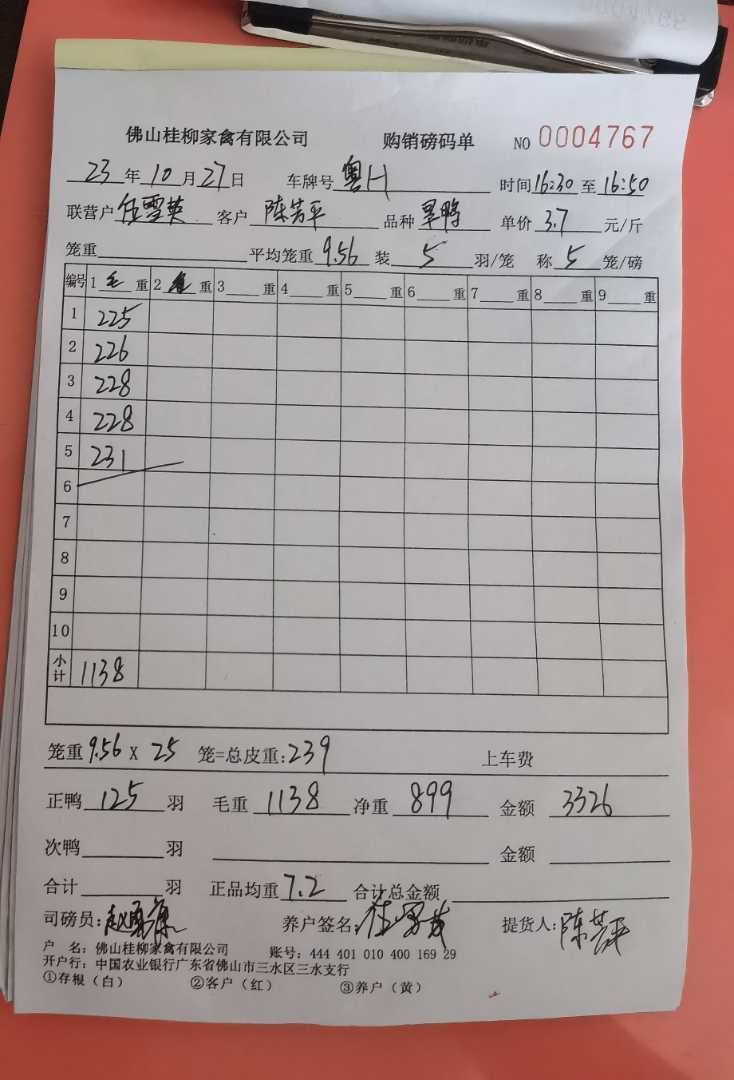 佛山桂柳家禽有限公司 购销磅码单 NO 0004767
23年10月27日 车牌号 粤H 时间16:30至16:50
联营户 雪英 客户 陈芳平 品种 旱鸭 单价 3.7 元/斤
笼重 平均笼重9.56 装 5 羽/笼 称 5 笼/磅
编号 1 毛 重 2 重 3 重 4 重 5 重 6 重 7 重 8 重 9 重
1 225
2 226
3 228
4 228
5 231
6
7
8
9
10
小计 1138
笼重9.56 X 25 笼=总皮重:239 上车费
正鸭 125 羽 毛重 1138 净重 899 金额 3326
次鸭 羽 金额
合计 羽 正品均重7.2 合计总金额
司磅员: 养户签名: 提货人:陈芳平
户 名: 佛山桂柳家禽有限公司 账号: 444 401 010 400 169 29
开户行: 中国农业银行广东省佛山市三水区三水支行
①存根（白） ②客户（红） ③养户（黄）